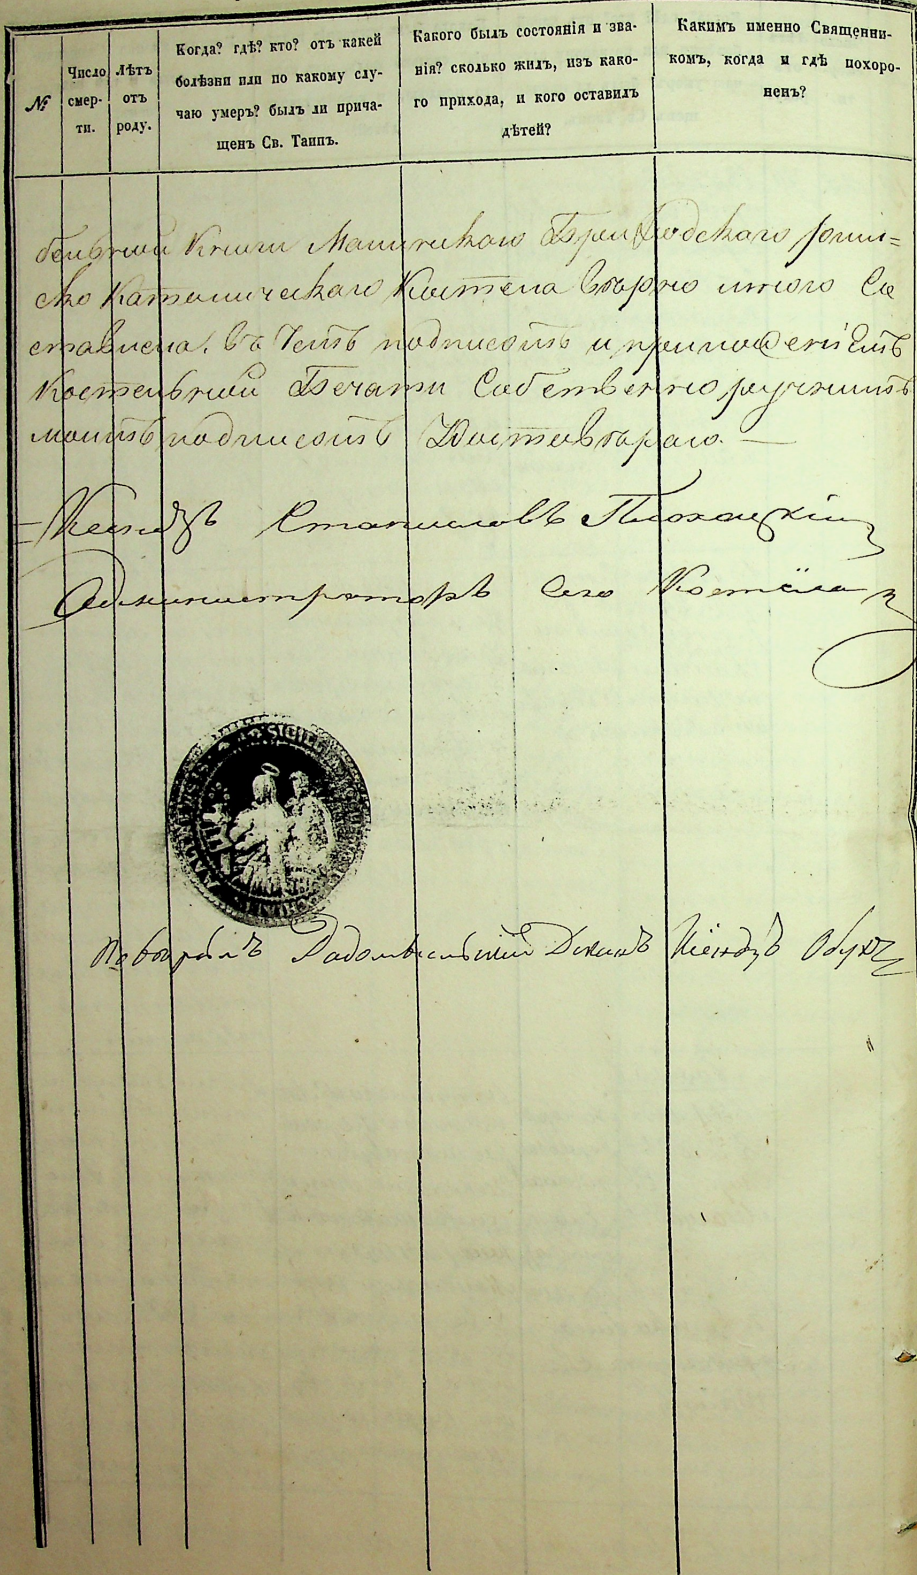 №
Число смер-
ти.
Лѣтъ
отъ
роду.
Когда? гдѣ? кто? отъ какей
болѣзни или по какому слу-
чаю умеръ? былъ ли прича-
щенъ Св. Таинъ.
Какого былъ состоянія и зва-
нія? сколько жилъ, изъ како-
го прихода, и кого оставилъ
дѣтей?
Каким​ъ именно Священни-
комъ, когда и гдѣ похоро-
ненъ?
бельной Книги Малинскаго Приходскаго Рим=
ско Католическаго Костела вѣрно мною Со
ставлена. въ чемъ подписомъ и приложеніемъ
Костельной Печати Собственно ручнымъ
моимъ подписомъ Удостовѣраю. —
Ксендзъ Станиславъ
Администраторъ сего Костёла
SIGILL
Повѣрялъ Радомысльскій Деканъ Ксёндзъ